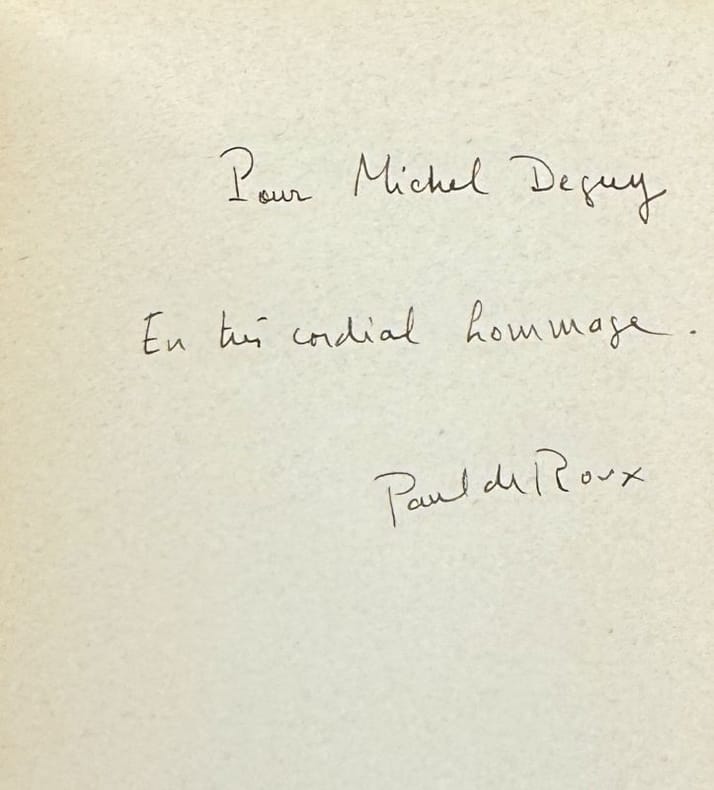 Pour Michel Deguy
En très cordial hommage.
Paul de Roux